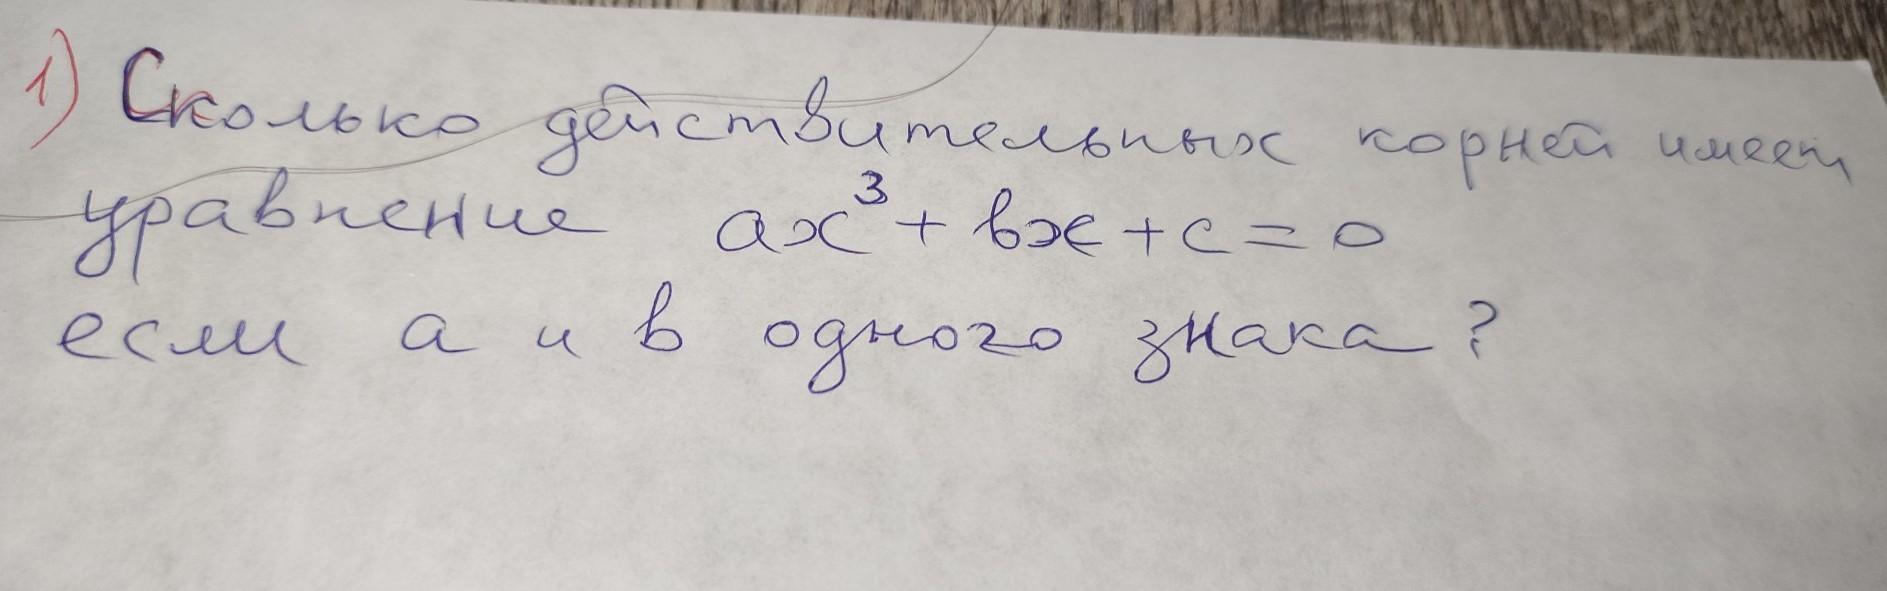 1) Сколько действительных корней имеет
уравнение ах³ + вх + с = 0
если а и в одного знака?